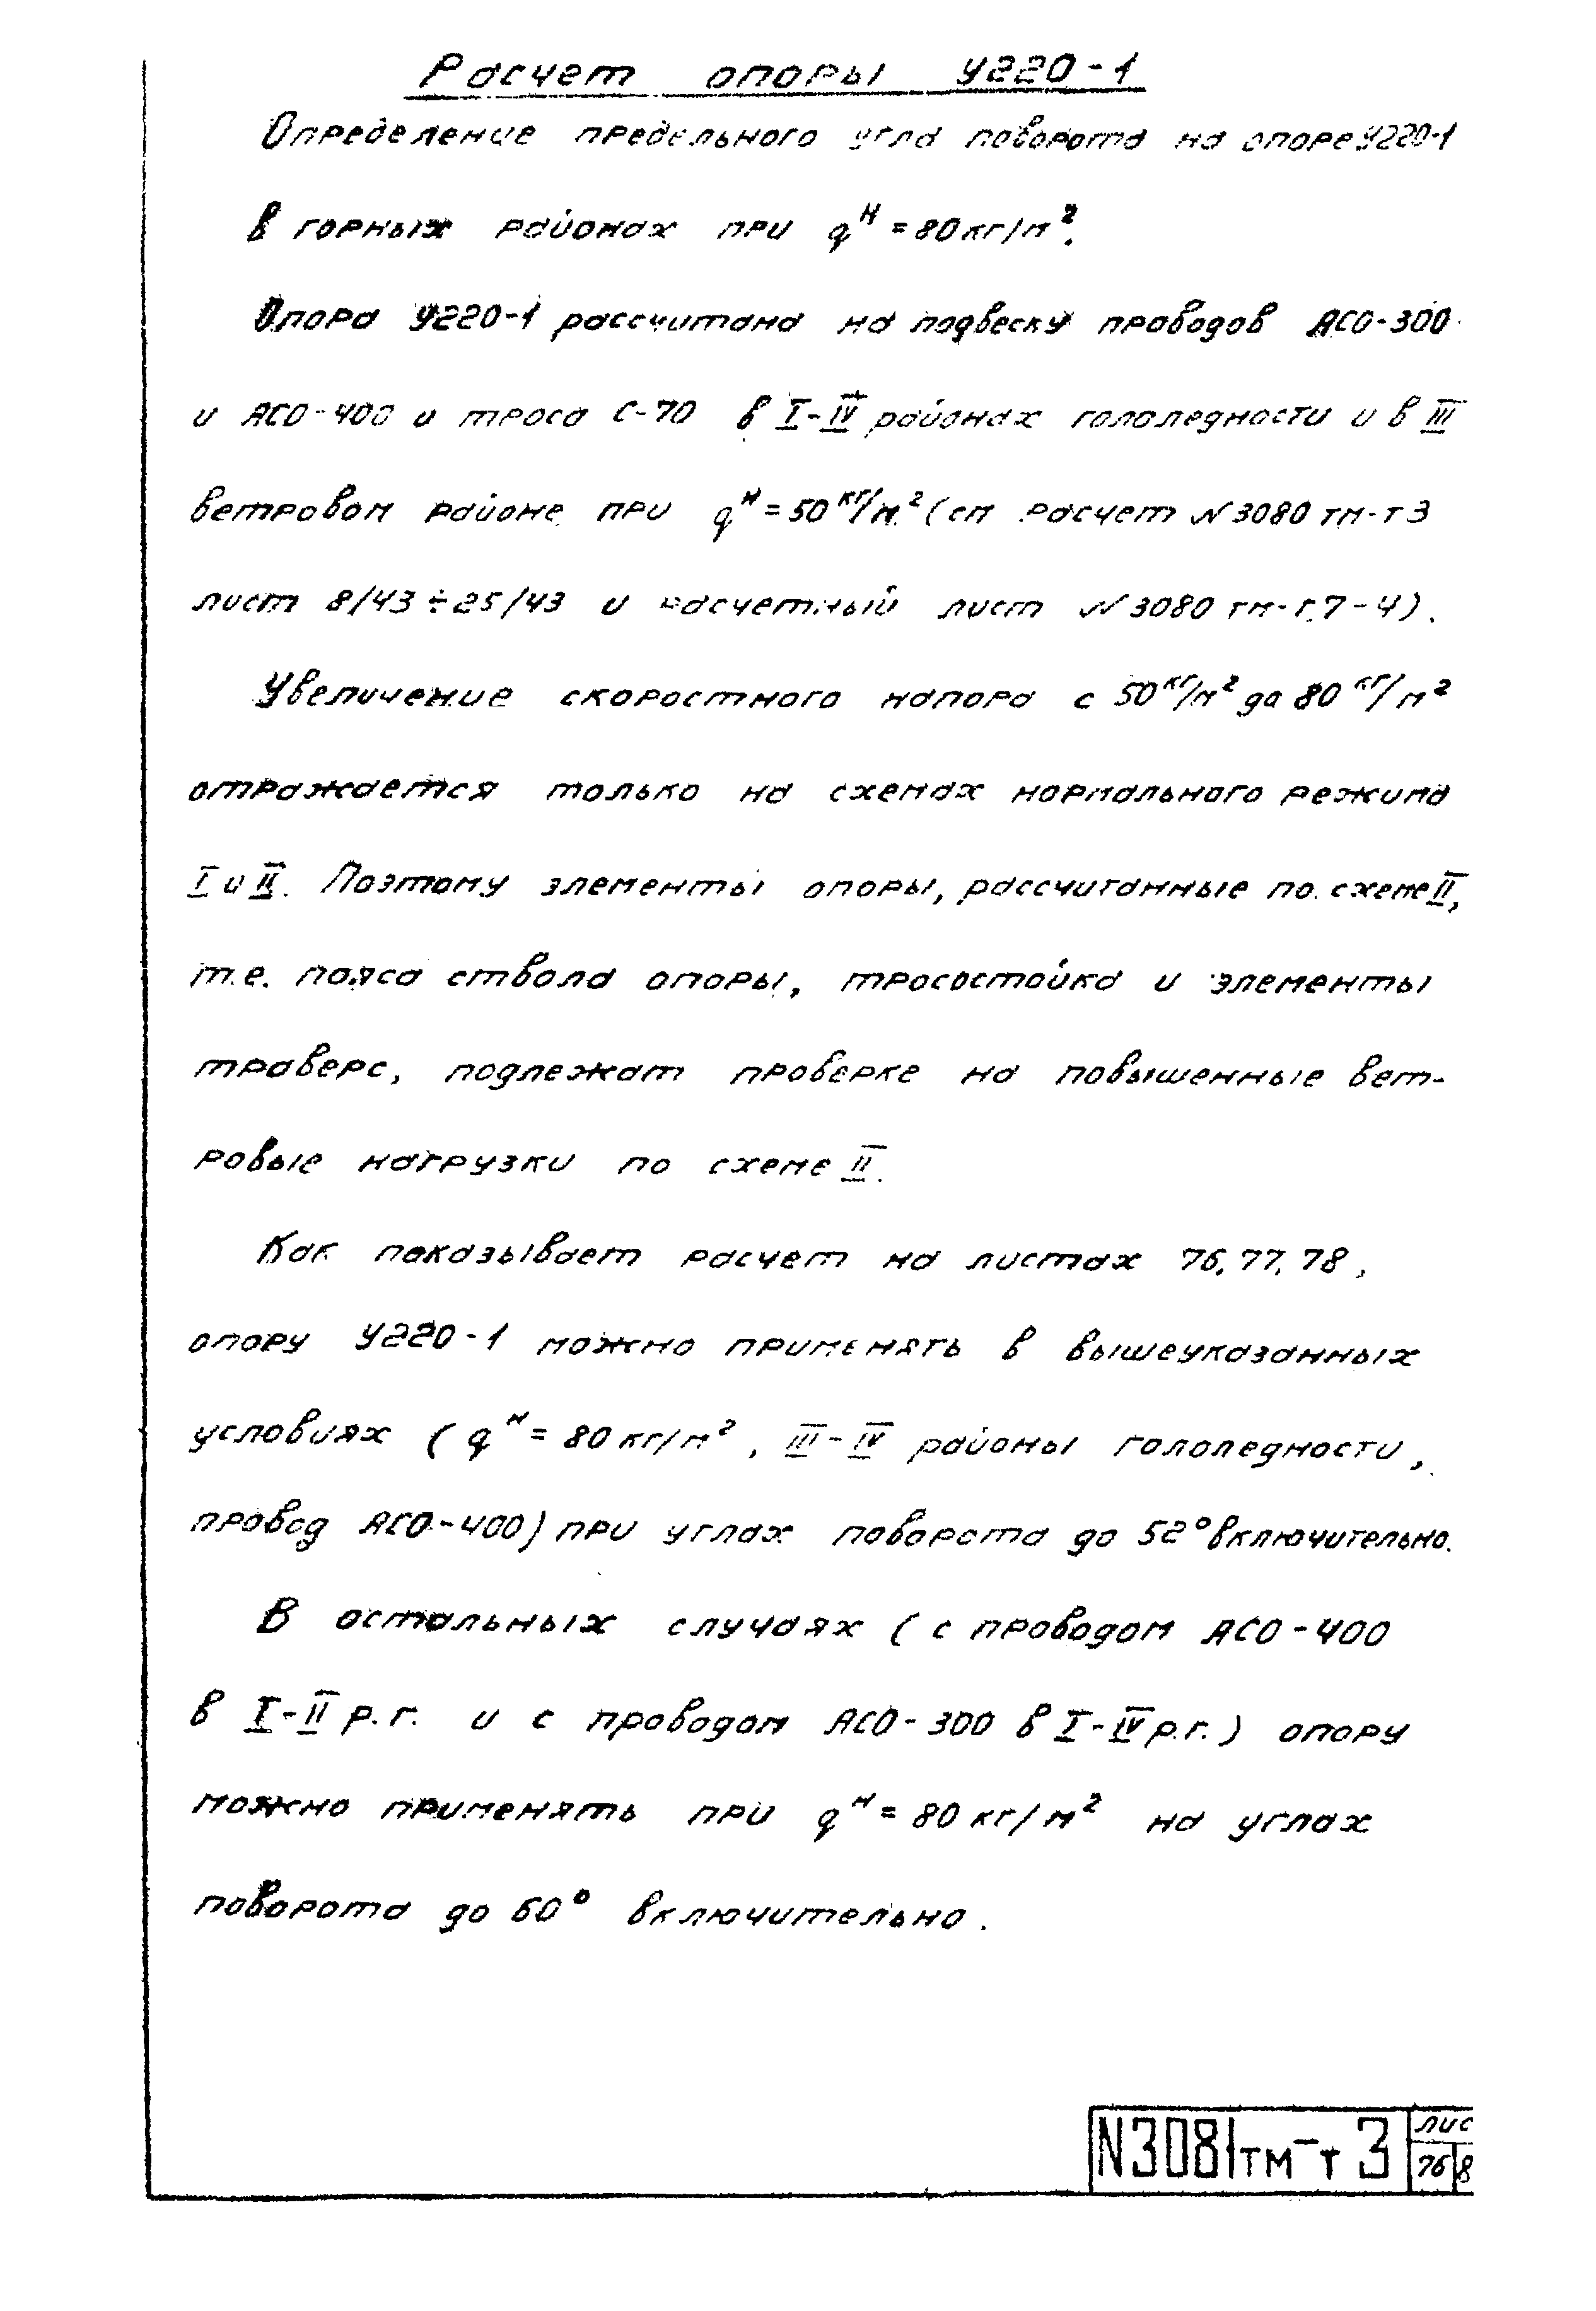 Расчет опоры У220-1
Определение предельного угла поворота на опоре У220-1
в горных районах при qᴴ = 80 кг/м².
Опора У220-1 рассчитана на подвеску проводов АСО-300
и АСО-400 и троса С-70 в I-IV районах гололедности и в III
ветровом районе при qᴴ = 50 кг/м² (см расчет N 3080 тм-т3
лист 8/43 ÷ 25/43 и расчетный лист N 3080 тм-т.7-4).
Увеличение скоростного напора с 50 кг/м² до 80 кг/м²
отражается только на схемах нормального режима
I и II. Поэтому элементы опоры, рассчитанные по схеме II,
т.е. пояса ствола опоры, тросостойка и элементы
траверс, подлежат проверке на повышенные вет-
ровые нагрузки по схеме II.
Как показывает расчет на листах 76, 77, 78,
опору У220-1 можно применять в вышеуказанных
условиях (qᴴ = 80 кг/м², III-IV районы гололедности,
провод АСО-400) при углах поворота до 52° включительно.
В остальных случаях (с проводом АСО-400
в I-II р.г. и с проводом АСО-300 в I-IV р.г.) опору
можно применять при qᴴ = 80 кг/м² на углах
поворота до 60° включительно.
N3081тм-т3
лис
76 8